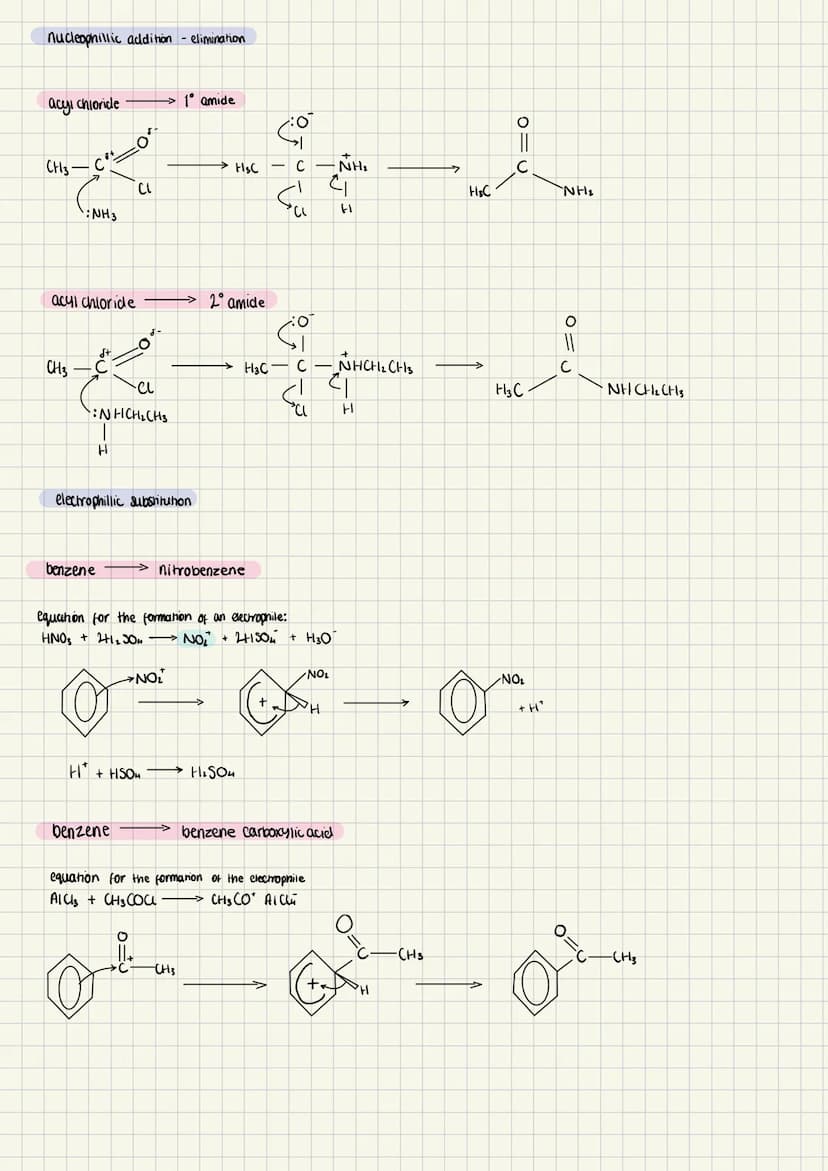 nucleophillic addition - elimination
acyl chloride → 1° amide
:O⁻
O
O δ-
CH₃ — C δ+
Cl
:NH₃
H₃C — C — NH₂ +
Cl
H
C
H₃C
NH₂
acyl chloride → 2° amide
:O⁻
O
O δ-
CH₃ — C δ+
Cl
:NHCH₂CH₃
H
H₃C — C — NHCH₂CH₃ +
Cl
H
C
H₃C
NHCH₂CH₃
electrophillic substitution
benzene → nitrobenzene
equation for the formation of an electrophile:
HNO₃ + 2H₂SO₄ → NO₂⁺ + 2HSO₄⁻ + H₃O⁻
NO₂⁺
NO₂
+
H
NO₂
+ H⁺
H⁺ + HSO₄ → H₂SO₄
benzene → benzene carboxylic acid
equation for the formation of the electrophile
AlCl₃ + CH₃COCl → CH₃CO⁺ AlCl₄⁻
O
C + — CH₃
O
C — CH₃
+
H
O
C — CH₃